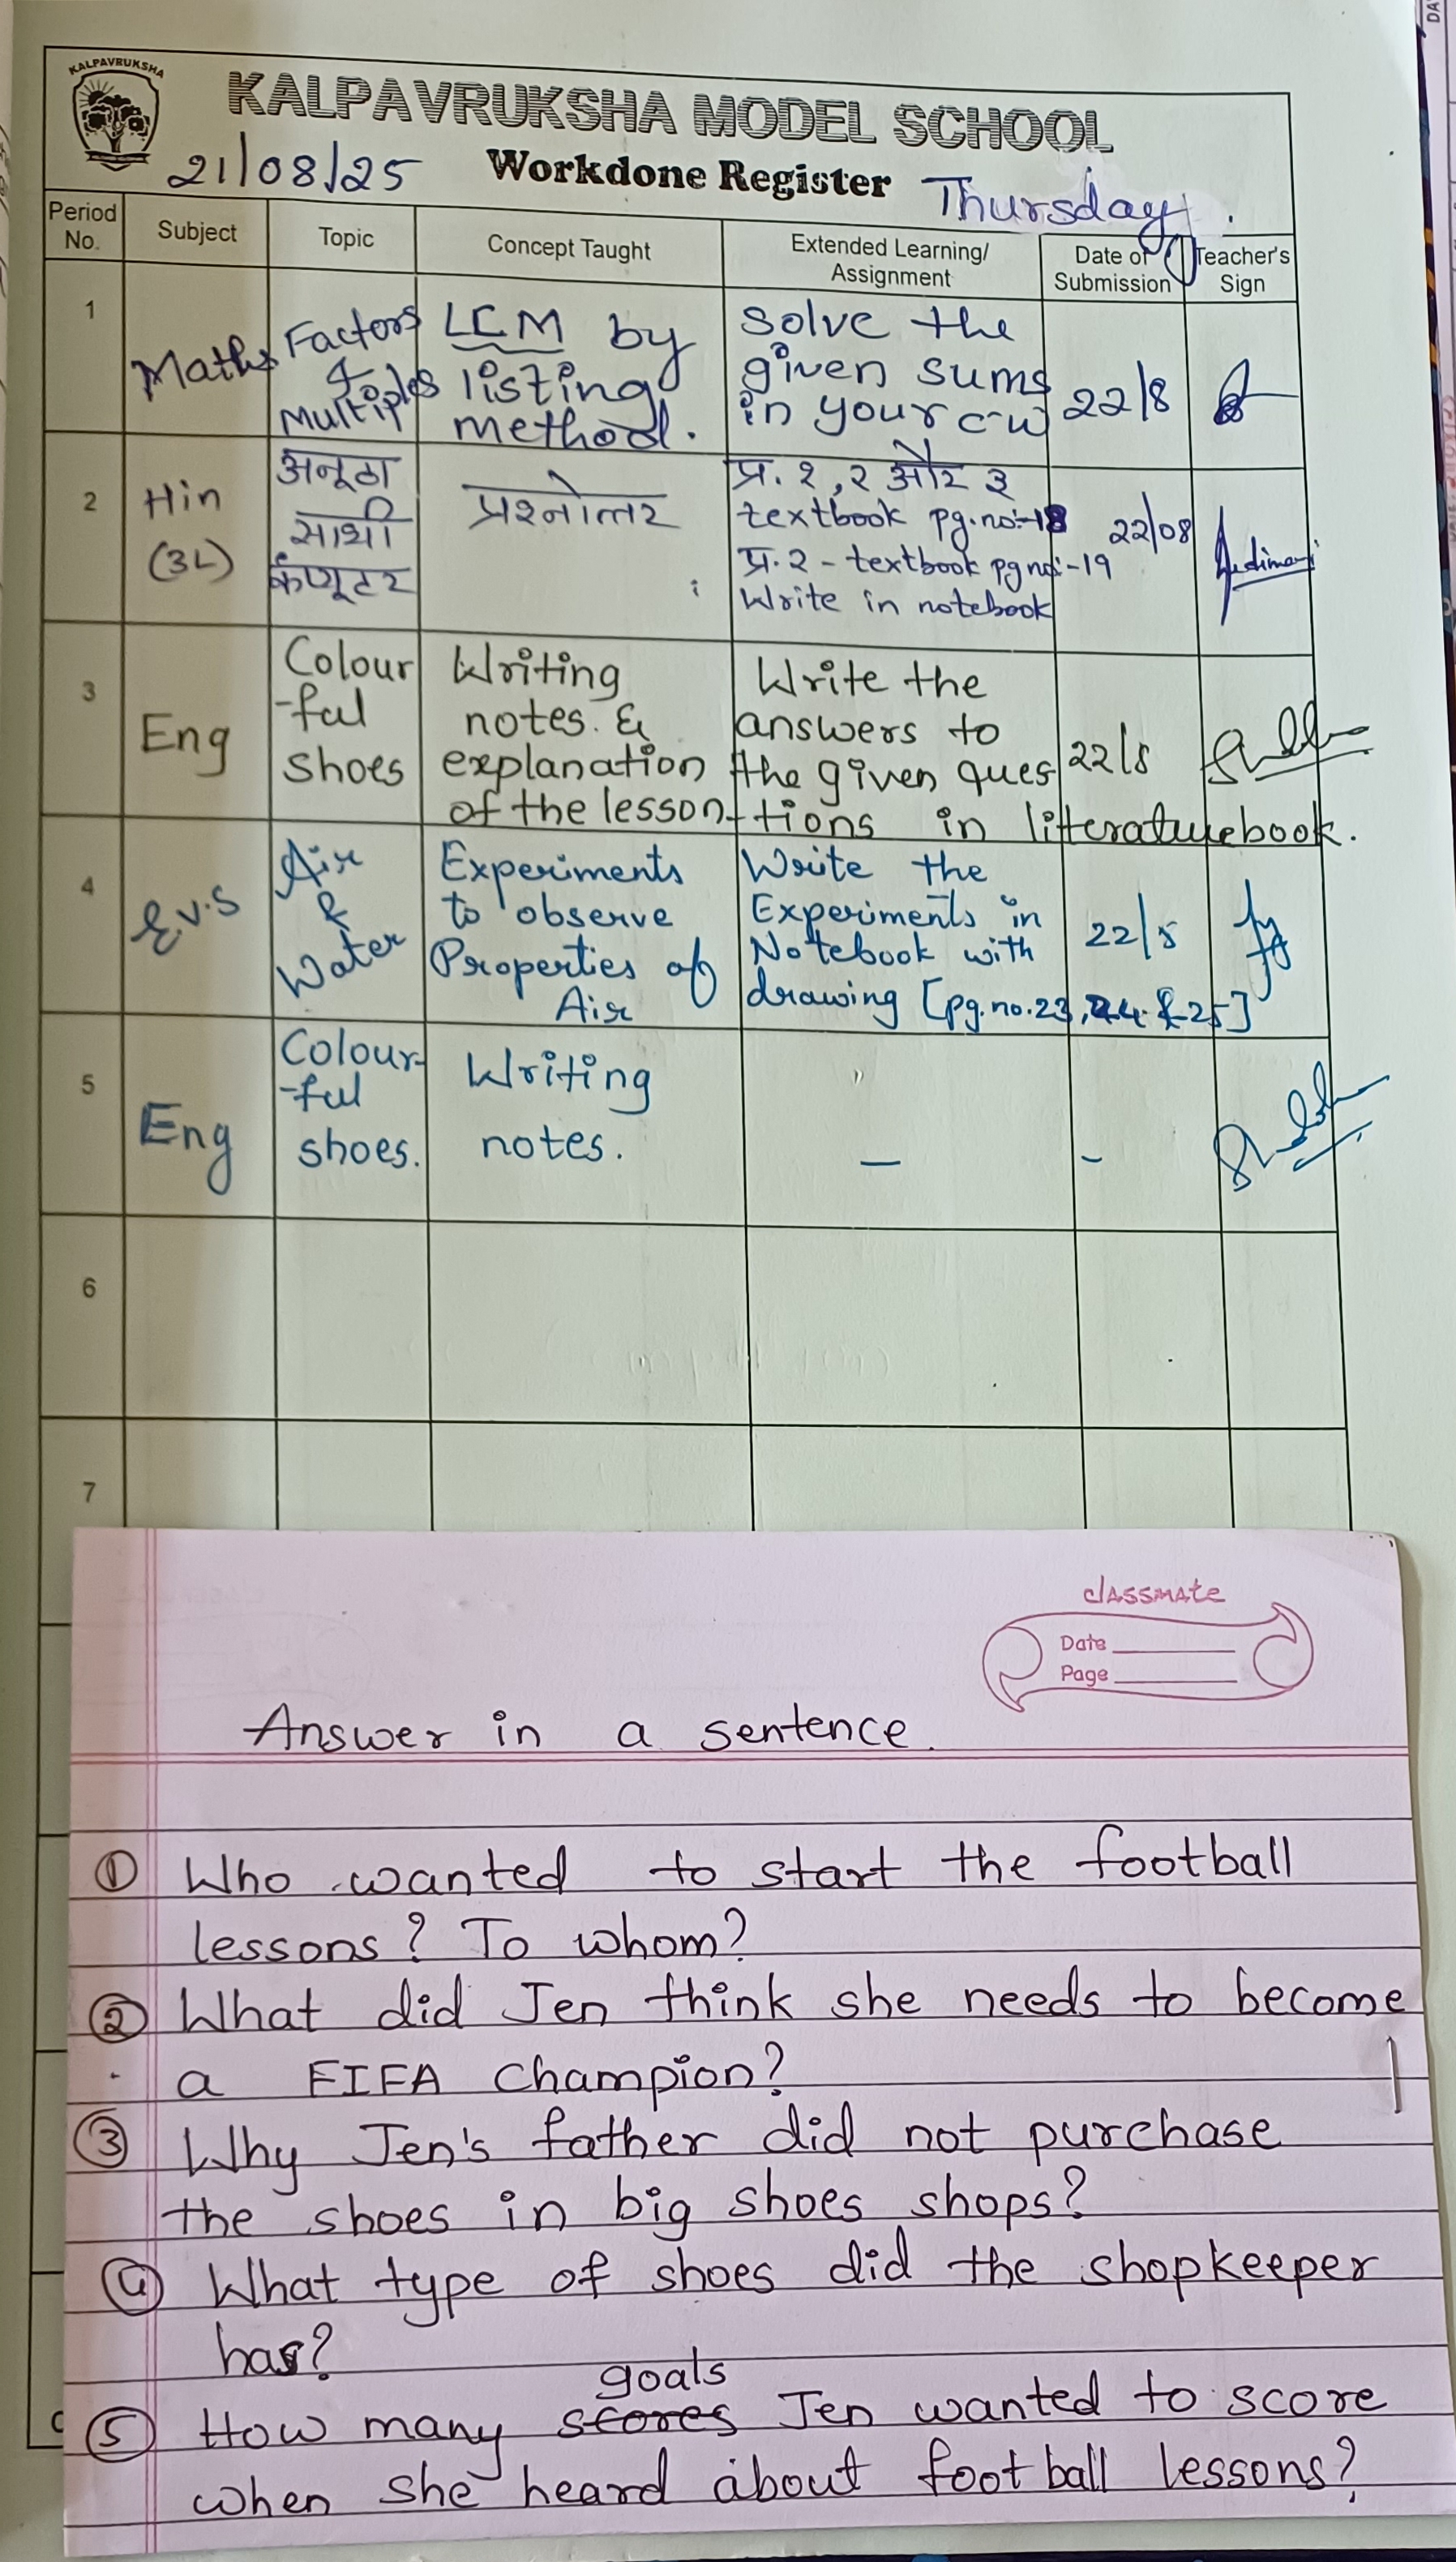 KALPAVRUKSHA
KALPAVRUKSHA MODEL SCHOOL
21/08/25 Workdone Register Thursday.
Period No. Subject Topic Concept Taught Extended Learning/ Assignment Date of Submission Teacher's Sign
1 Maths Factors & Multiples LCM by listing method. Solve the given sums in your c-w 22/8
2 Hin (3L) अनूठा साथी कंप्यूटर प्रश्नोत्तर प्र. १, २ और ३ textbook pg.no:-18 प्र. २ - textbook pg no:-19 Write in notebook 22/08
3 Eng Colour -ful shoes Writing notes & explanation of the lesson Write the answers to the given ques -tions in literature book. 22/8
4 E.V.S Air & Water Experiments to observe Properties of Air Write the Experiments in Notebook with drawing [pg.no.23, 24 & 25] 22/8
5 Eng Colour- -ful shoes. Writing notes. — –
6
7
classmate
Date
Page
Answer in a sentence.
① Who wanted to start the football
lessons? To whom?
② What did Jen think she needs to become
a FIFA Champion?
③ Why Jen's father did not purchase
the shoes in big shoes shops?
④ What type of shoes did the shopkeeper
has?
goals
⑤ How many stores Jen wanted to score
when she heard about football lessons?